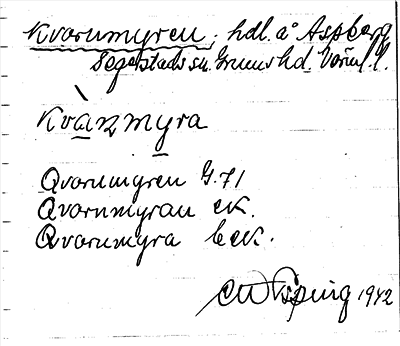 Kvarnmyren, hdl. å Aspberg
Segerstads sn. Grums hd. Värml. l.
Kvà̱ɳmy̱ra
Qvarnmgren G.71
Qvarnmyran ek.
Qvarnmyra bek.
1942